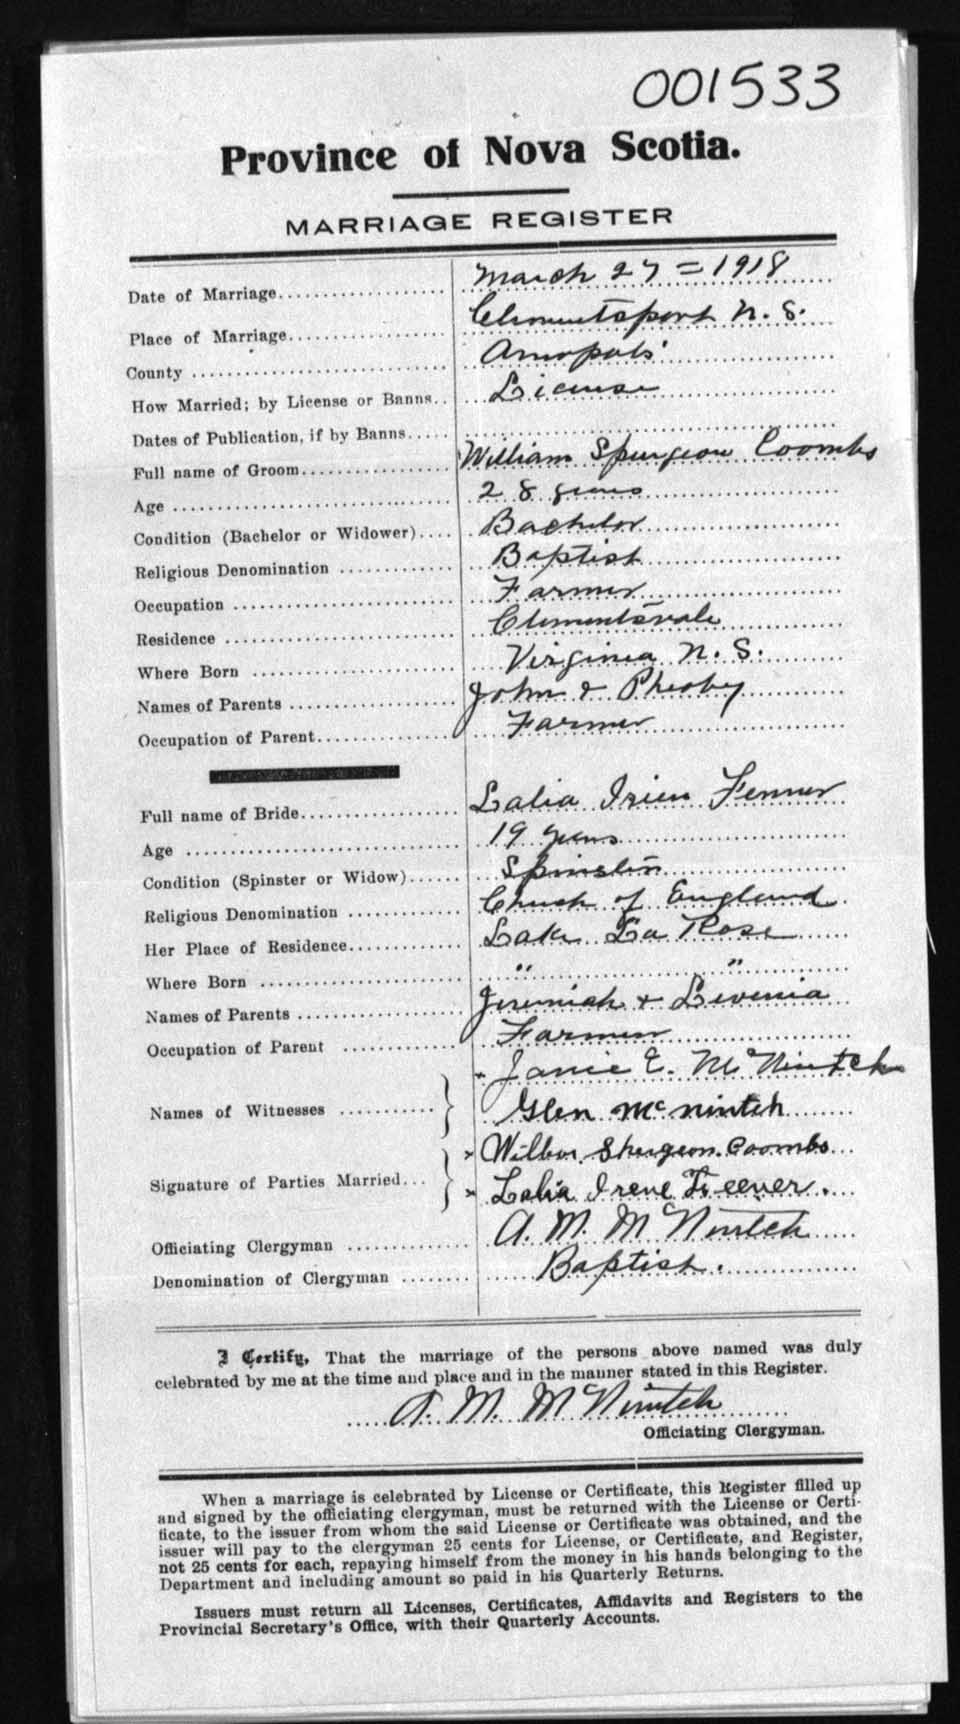 001533
Province of Nova Scotia.
MARRIAGE REGISTER
Date of Marriage March 27 = 1918
Place of Marriage Clementsport N. S.
County Annapolis
How Married; by License or Banns License
Dates of Publication, if by Banns
Full name of Groom William Spurgeon Coombs
Age 28 years
Condition (Bachelor or Widower) Bachelor
Religious Denomination Baptist
Occupation Farmer
Residence Clementsvale
Where Born Virginia N. S.
Names of Parents John & Pheoby
Occupation of Parent Farmer
Full name of Bride Lalia Irien Fenner
Age 19 years
Condition (Spinster or Widow) Spinster
Religious Denomination Church of England
Her Place of Residence Lake La Rose
Where Born " "
Names of Parents Jeremiah & Levenia
Occupation of Parent Farmer
Janie E. McNintch
Names of Witnesses Glen McNintch
× Wilbur Spurgeon Coombs
Signature of Parties Married × Lalia Irene
Officiating Clergyman A. M. McNintch
Denomination of Clergyman Baptist.
I Certify, That the marriage of the persons above named was duly
celebrated by me at the time and place and in the manner stated in this Register.
A. M. McNintch
Officiating Clergyman.
When a marriage is celebrated by License or Certificate, this Register filled up
and signed by the officiating clergyman, must be returned with the License or Certi-
ficate, to the issuer from whom the said License or Certificate was obtained, and the
issuer will pay to the clergyman 25 cents for License, or Certificate, and Register,
not 25 cents for each, repaying himself from the money in his hands belonging to the
Department and including amount so paid in his Quarterly Returns.
Issuers must return all Licenses, Certificates, Affidavits and Registers to the
Provincial Secretary's Office, with their Quarterly Accounts.